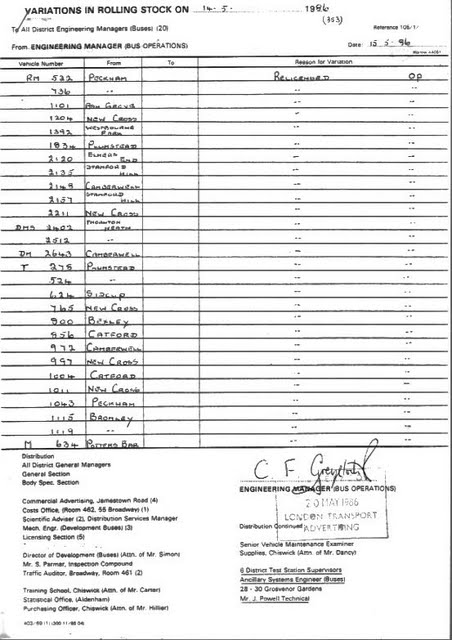 VARIATIONS IN ROLLING STOCK ON 14.5. 1986
(353)
To All District Engineering Managers (Buses) (20)
From ENGINEERING MANAGER (BUS OPERATIONS)
Date: 15.5.86
Vehicle Number From To Reason for Variation
RM 532 PECKHAM RELICENSED OP
736 " " "
1101 ASH GROVE " "
1204 NEW CROSS " "
1392 WESTBOURNE PARK " "
1834 PLUMSTEAD " "
2120 ELMERS END " "
2135 STAMFORD HILL " "
2148 CAMBERWELL " "
2157 STAMFORD HILL " "
2211 NEW CROSS " "
DMS 2402 THORNTON HEATH " "
2512 " " "
DM 2643 CAMBERWELL " "
T 275 PLUMSTEAD " "
524 " " "
624 SIDCUP " "
765 NEW CROSS " "
800 BEXLEY " "
856 CATFORD " "
972 CAMBERWELL " "
997 NEW CROSS " "
1004 CATFORD " "
1011 NEW CROSS " "
1043 PECKHAM " "
1115 BROMLEY " "
1119 " " "
M 634 POTTERS BAR " "
Distribution
All District General Managers
General Section
Body Spec. Section
C F
ENGINEERING MANAGER (BUS OPERATIONS)
20 MAY 1986
LONDON TRANSPORT
ADVERTISING
Commercial Advertising, Jamestown Road (4)
Costs Office, (Room 462, 55 Broadway) (1)
Scientific Adviser (2), Distribution Services Manager
Mech. Engr. (Development Buses) (3)
Licensing Section (5)
Distribution Continued
Senior Vehicle Maintenance Examiner
Supplies, Chiswick (Attn. of Mr. Dancy)
Director of Development (Buses) (Attn. of Mr. Simon)
Mr. S. Parmar, Inspection Compound
Traffic Auditor, Broadway, Room 461 (2)
6 District Test Station Supervisors
Ancillary Systems Engineer (Buses)
28 - 30 Grosvenor Gardens
Mr. J. Powell Technical
Training School, Chiswick (Attn. of Mr. Carter)
Statistical Office, (Aldenham)
Purchasing Officer, Chiswick (Attn. of Mr. Hillier)